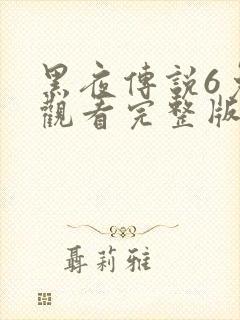 黑夜傳説6
觀看完整版
聶莉雅